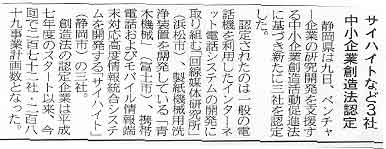 サイハイトなど3社
中小企業創造法認定
静岡県は九日、ベンチャ
ー企業の研究開発を支援す
る中小企業創造活動促進法
に基づき新たに三社を認定
した。
認定されたのは一般の電
話機を利用したインターネ
ット電話システムの開発に
取り組む「回線媒体研究所」
（浜松市）、製紙機械用洗
浄装置を開発している「青
木機械」（富士市）、携帯
電話およびモバイル情報端
末対応高度情報統合システ
ムを開発する「サイハイト」
（静岡市）の三社。
創造法の認定企業は平成
七年度のスタート以来、今
回で二百七十二社、二百八
十九事業計画数となった。